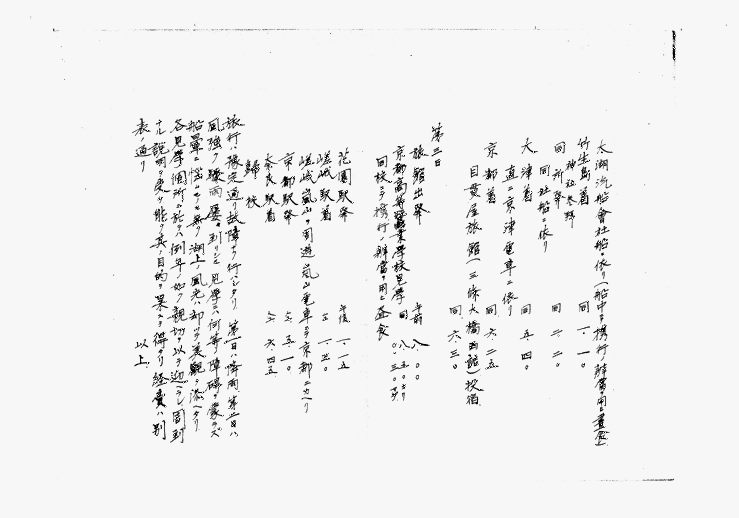 太湖汽船會社船ニ依リ(船中ニテ携行辨當ヲ用ヒ晝食)
竹生島着 同 一、一〇
神社参拜
同所發 同 二、二〇
同社船ニ依リ
大津着 同 五、四〇
直ニ京津電車ニ依リ
京都着 同 六、二五
目貫屋旅館(三條大橋西詰)投宿 同 六、三〇
第三日
旅館出發 午前 八、〇〇
京都高等蠶業學校見學 同 八、五〇ヨリ 〇、三〇マデ
同校ニテ携行ノ辨當ヲ用ヒ晝食
花園駅發 午後 一、一五
嵯峨駅着 仝 一、二〇
嵯峨嵐山ヲ周遊シ嵐山電車ニテ京都ニカヘリ
京都駅發 仝、五、一〇
奈良駅着 仝、六、四五
歸校
旅行ハ豫定通リ故障ナク行ハレタリ 第一日ハ降雨第二日ハ
風強ク驟雨屡々到リシモ見學ニハ何等ノ障碍ヲ蒙ラズ
船暈ニ悩ムモノモ無ク湖上ノ風光ハ却ツテ美観ヲ添ヘタリ
各見學個所ニ於テハ例年ノ如ク親切ヲ以テ迎ヘラレ周到
ナル説明ヲ受ケ能ク其ノ目的ヲ果スヲ得タリ経費ハ別
表ノ通リ
以上